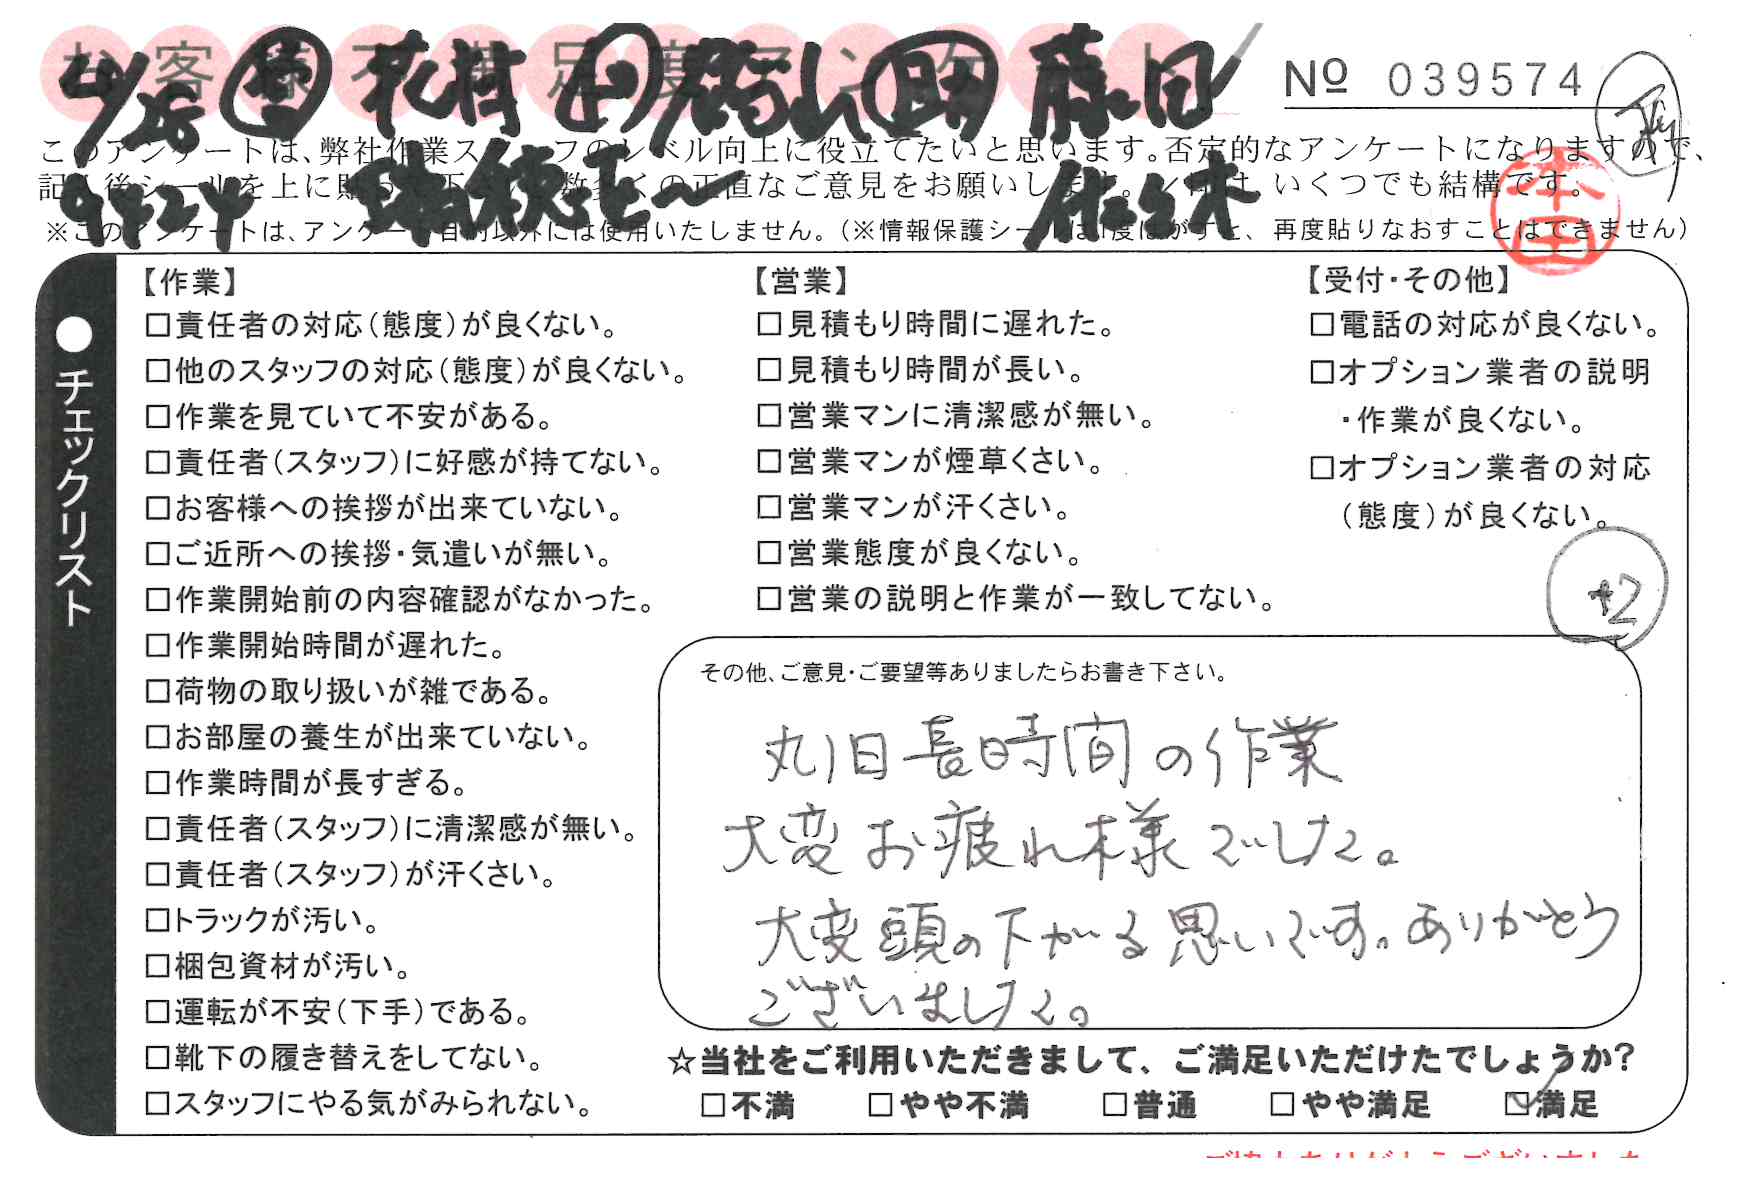 お客様不満足度アンケート
4/28 営 花村 作 鶴山 助 藤田
No 039574
このアンケートは、弊社作業スタッフのレベル向上に役立てたいと思います。否定的なアンケートになりますので、
記入後シールを上に貼って下さい。数多くの正直なご意見をお願いします。
いくつでも結構です。
9424 瑞穂 佐々木
※このアンケートは、アンケート目的以外には使用いたしません。(※情報保護シールは1度はがすと、再度貼りなおすことはできません)
本田
●チェックリスト
【作業】
□責任者の対応(態度)が良くない。
□他のスタッフの対応(態度)が良くない。
□作業を見ていて不安がある。
□責任者(スタッフ)に好感が持てない。
□お客様への挨拶が出来ていない。
□ご近所への挨拶・気遣いが無い。
□作業開始前の内容確認がなかった。
□作業開始時間が遅れた。
□荷物の取り扱いが雑である。
□お部屋の養生が出来ていない。
□作業時間が長すぎる。
□責任者(スタッフ)に清潔感が無い。
□責任者(スタッフ)が汗くさい。
□トラックが汚い。
□梱包資材が汚い。
□運転が不安(下手)である。
□靴下の履き替えをしてない。
□スタッフにやる気がみられない。
【営業】
□見積もり時間に遅れた。
□見積もり時間が長い。
□営業マンに清潔感が無い。
□営業マンが煙草くさい。
□営業マンが汗くさい。
□営業態度が良くない。
□営業の説明と作業が一致してない。
【受付・その他】
□電話の対応が良くない。
□オプション業者の説明
・作業が良くない。
□オプション業者の対応
(態度)が良くない。
+2
その他、ご意見・ご要望等ありましたらお書き下さい。
丸1日長時間の作業
大変お疲れ様でした。
大変頭の下がる思いです。ありがとう
ございました。
☆当社をご利用いただきまして、ご満足いただけたでしょうか?
□不満 □やや不満 □普通 □やや満足 ☑満足
ご協力ありがとうございました